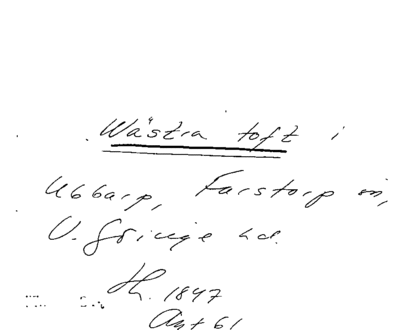 Wästra toft i
Ubbarp, Farstorp sn,
V. Göinge hd.
Th. 1847
Ant 61